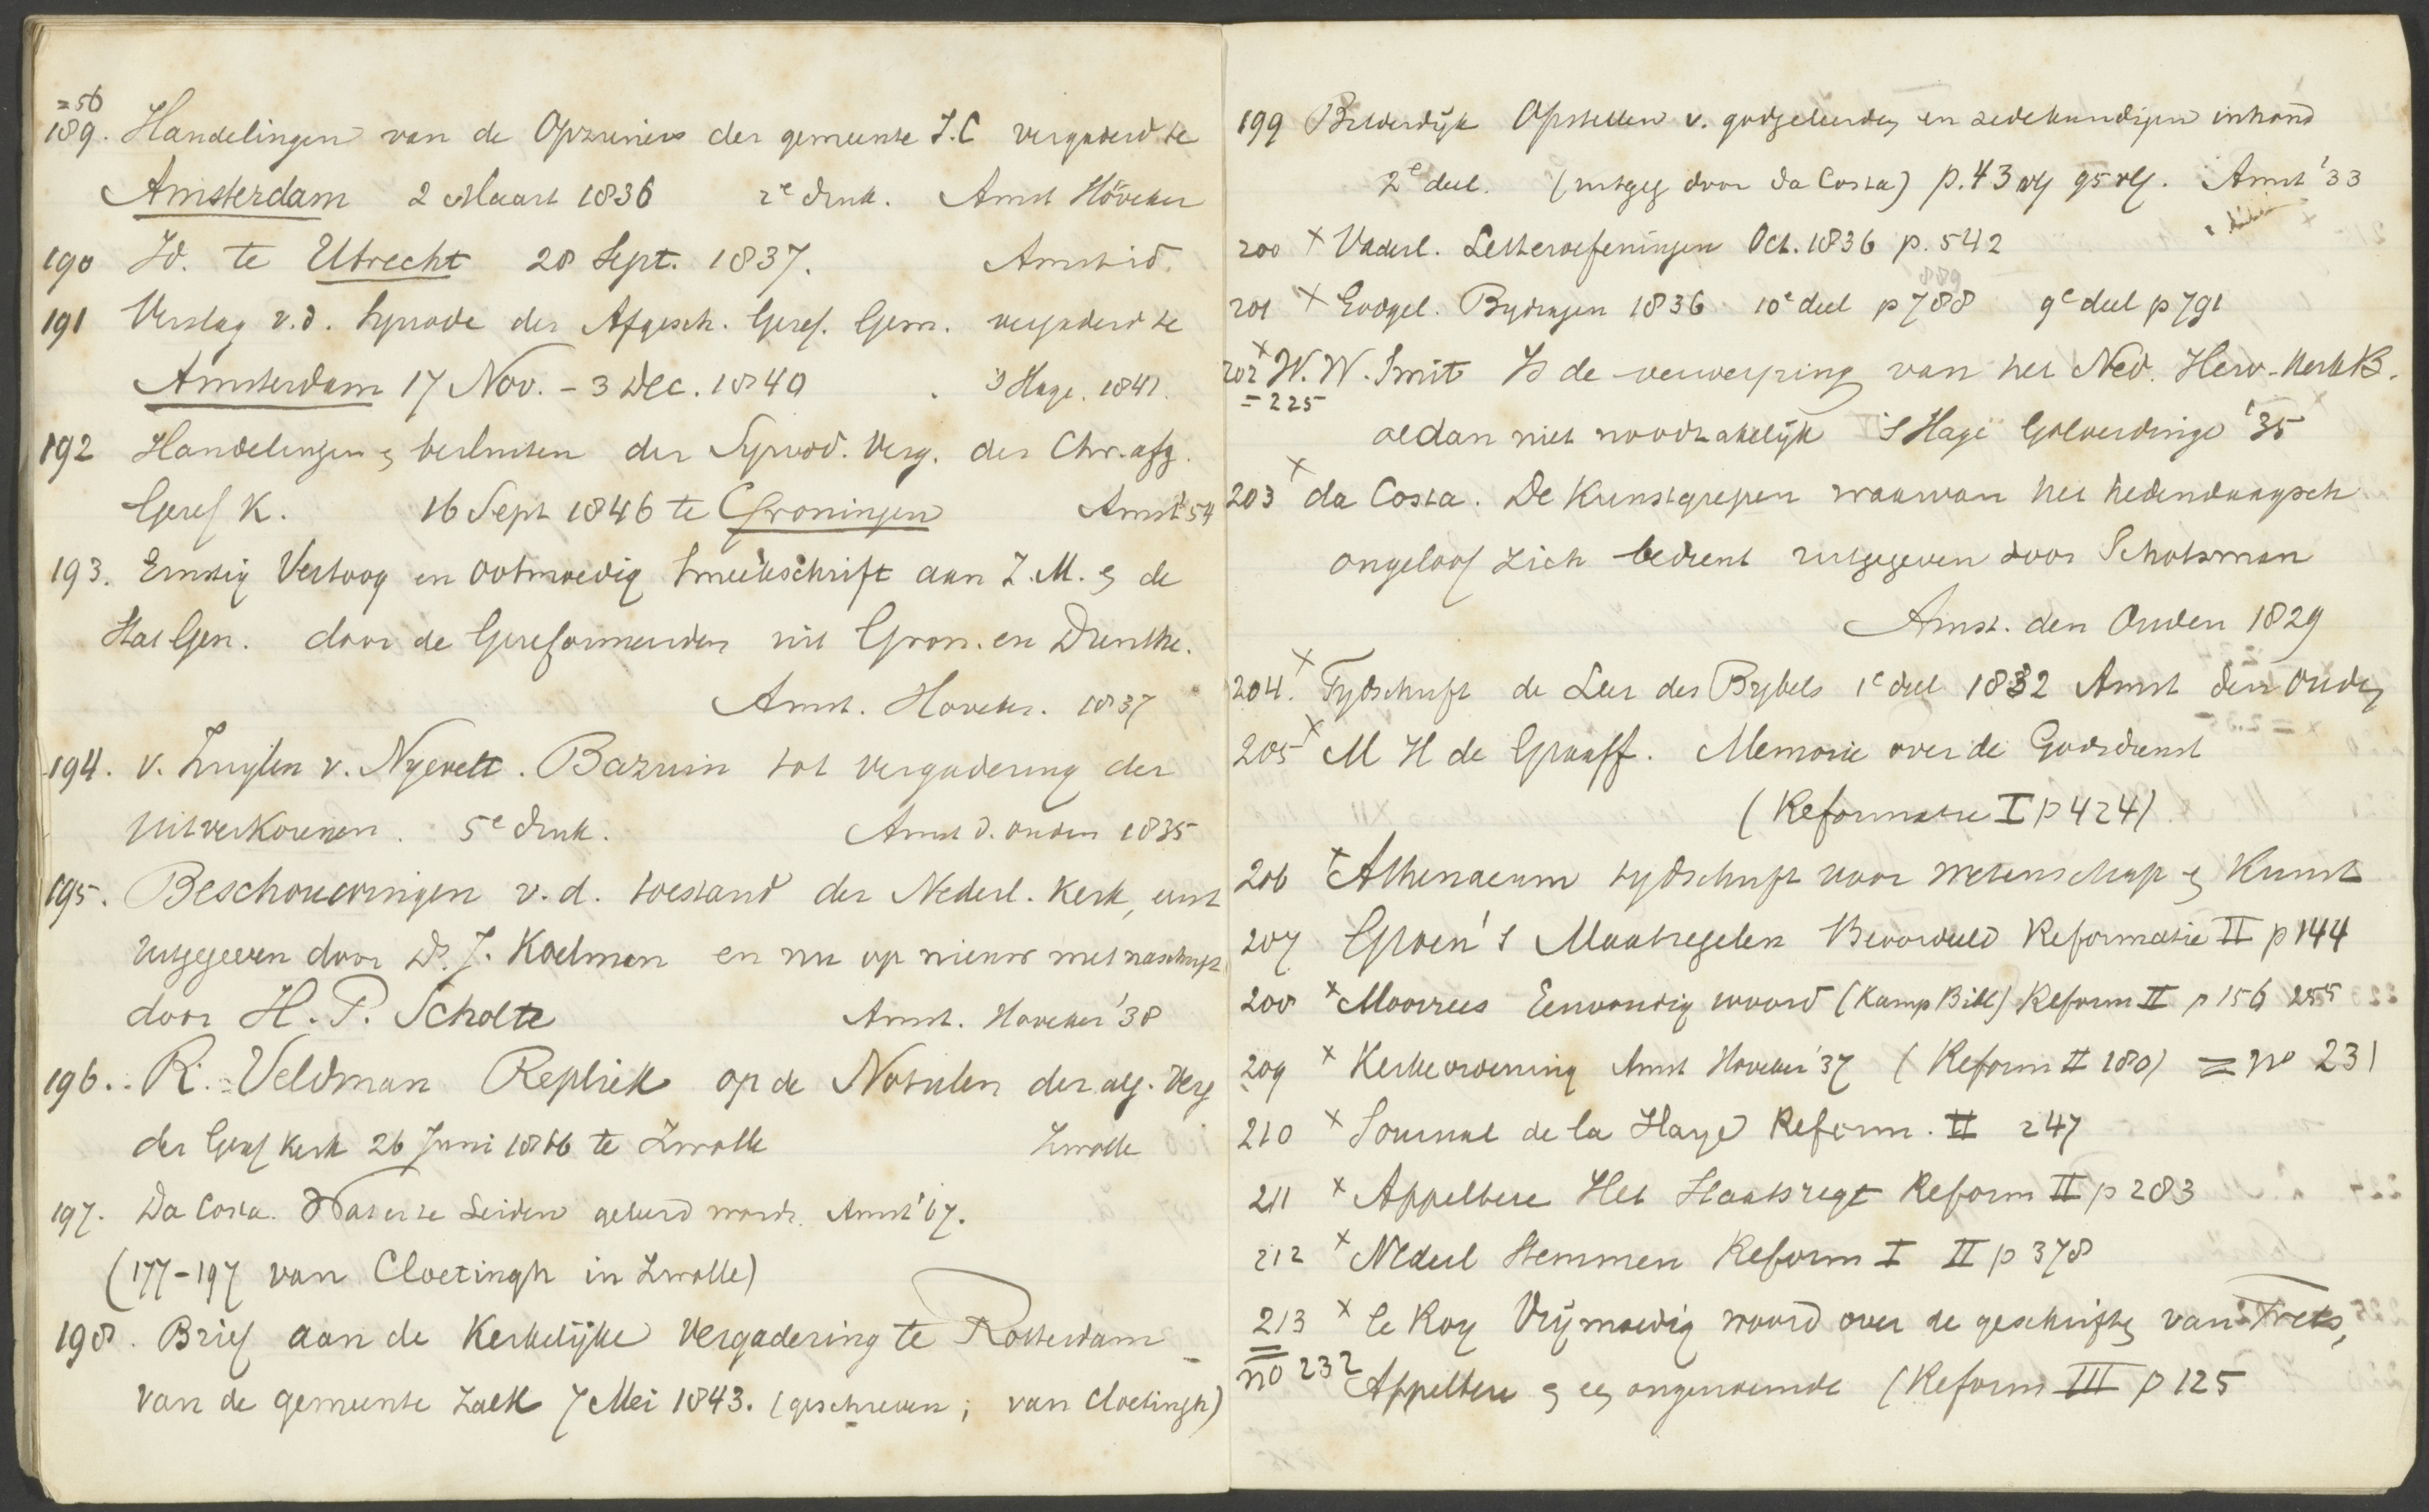 =56
189. Handelingen van de Opzieners der gemeente J.C vergaderd te
Amsterdam 2 Maart 1836 2e druk. Amst Höveker
190 Id. te Utrecht 28 Sept. 1837. Amst id.
191 Verslag v.d. Synode der Afgesch. Geref. Gem. vergaderd te
Amsterdam 17 Nov. - 3 Dec. 1840 's Hage. 1841.
192 Handelingen & besluiten der Synod. Verg. der Chr. afg.
Geref K. 16 Sept 1846 te Groningen Amst '54
193. Ernstig Vertoog en ootmoedig smeekschrift aan Z.M. & de
Stat Gen. door de Gereformeerden uit Gron. en Drenthe.
Amst. Hoveker. 1837
194. v. Zuylen v. Nyevelt. Bazuin tot vergadering der
uitverkorenen. 5e druk. Amst d. Ouden 1835
195. Beschouwingen v.d. toestand der Nederl. Kerk, eerst
uitgegeven door Ds. J. Koelman en nu op nieuw met naschrift
door H. P. Scholte Amst. Hoveker '38
196. R. Veldman Repliek op de Notulen der alg. Verg
der Geref Kerk 26 Juni 1866 te Zwolle Zwolle
197. Da Costa. Wat er te Leiden geleerd wordt. Amst '67.
(177-197 van Cloetingh in Zwolle)
198. Brief aan de Kerkelijke Vergadering te Rotterdam
van de gemeente Zalk 7 Mei 1843. (geschreven; van Cloetingh)
199 Bilderdijk Opstellen v. godgeleerden en zedekundigen inhoud
2e deel. (uitgeg door da Costa) p. 43 vlg 95 vlg. Amst '33
200 x Vaderl. Letteroefeningen Oct. 1836 p. 542
889
201 x Godgel. Bydragen 1836 10e deel p 788 9e deel p 791
202 x W. W. Smit Is de verwerping van het Ned. Herv. Kerk B.
= 225
al dan niet noodzakelijk 's Hage Golverdinge '35
203 x da Costa. De Kunstgrepen waarvan het hedendaagsch
ongeloof zich bedient uitgegeven door Schotsman
Amst. den Ouden 1829
204. x Tydschrift de Leer des Bybels 1e deel 1832 Amst den Ouden
205 x M H de Graaff. Memorie over de Godsdienst
(Reformatie I p 424)
206 x Athenaeum tydschrift voor wetenschap & Kunst
207 Groen's Maatregelen Beoordeeld Reformatie II p 144
208 x Moorrees Eenvoudig woord (Kamp Bibl) Reform II p 156 255
209 x Kerkeordening Amst Hoveker '37 (Reform II 180) = no 231
210 x Journal de la Haye Reform. II 247
211 x Appeltere Het Staatsregt Reform II p 283
212 x Nederl Stemmen Reform I II p 378
213 x le Roy Vrijmoedig woord over de geschriften van Trets,
= no 232 Appeltere & een ongenoemde (Reform III p 125